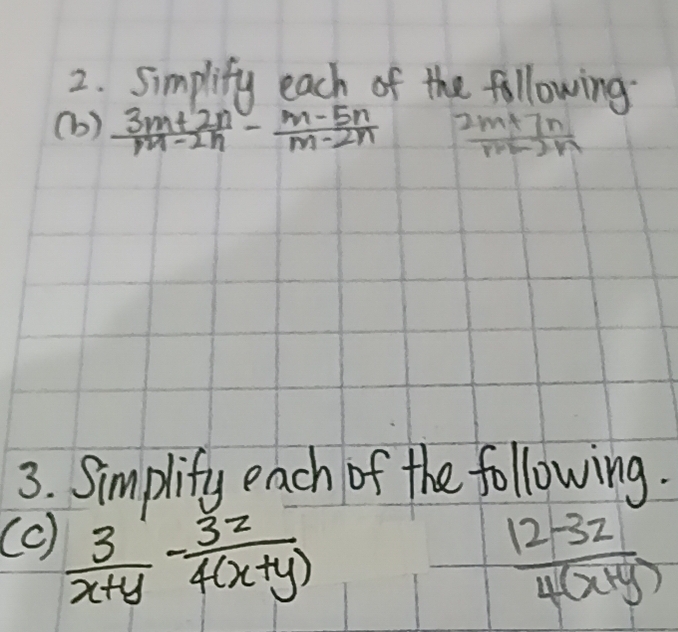 2. Simplify each of the following.
(b) (3m+2n)/(m-2n) - (m-5n)/(m-2n) (2m+7n)/(m-2n)
3. Simplify each of the following.
(c) 3/(x+y) - 3z/(4(x+y)) (12-3z)/(4(x+y))